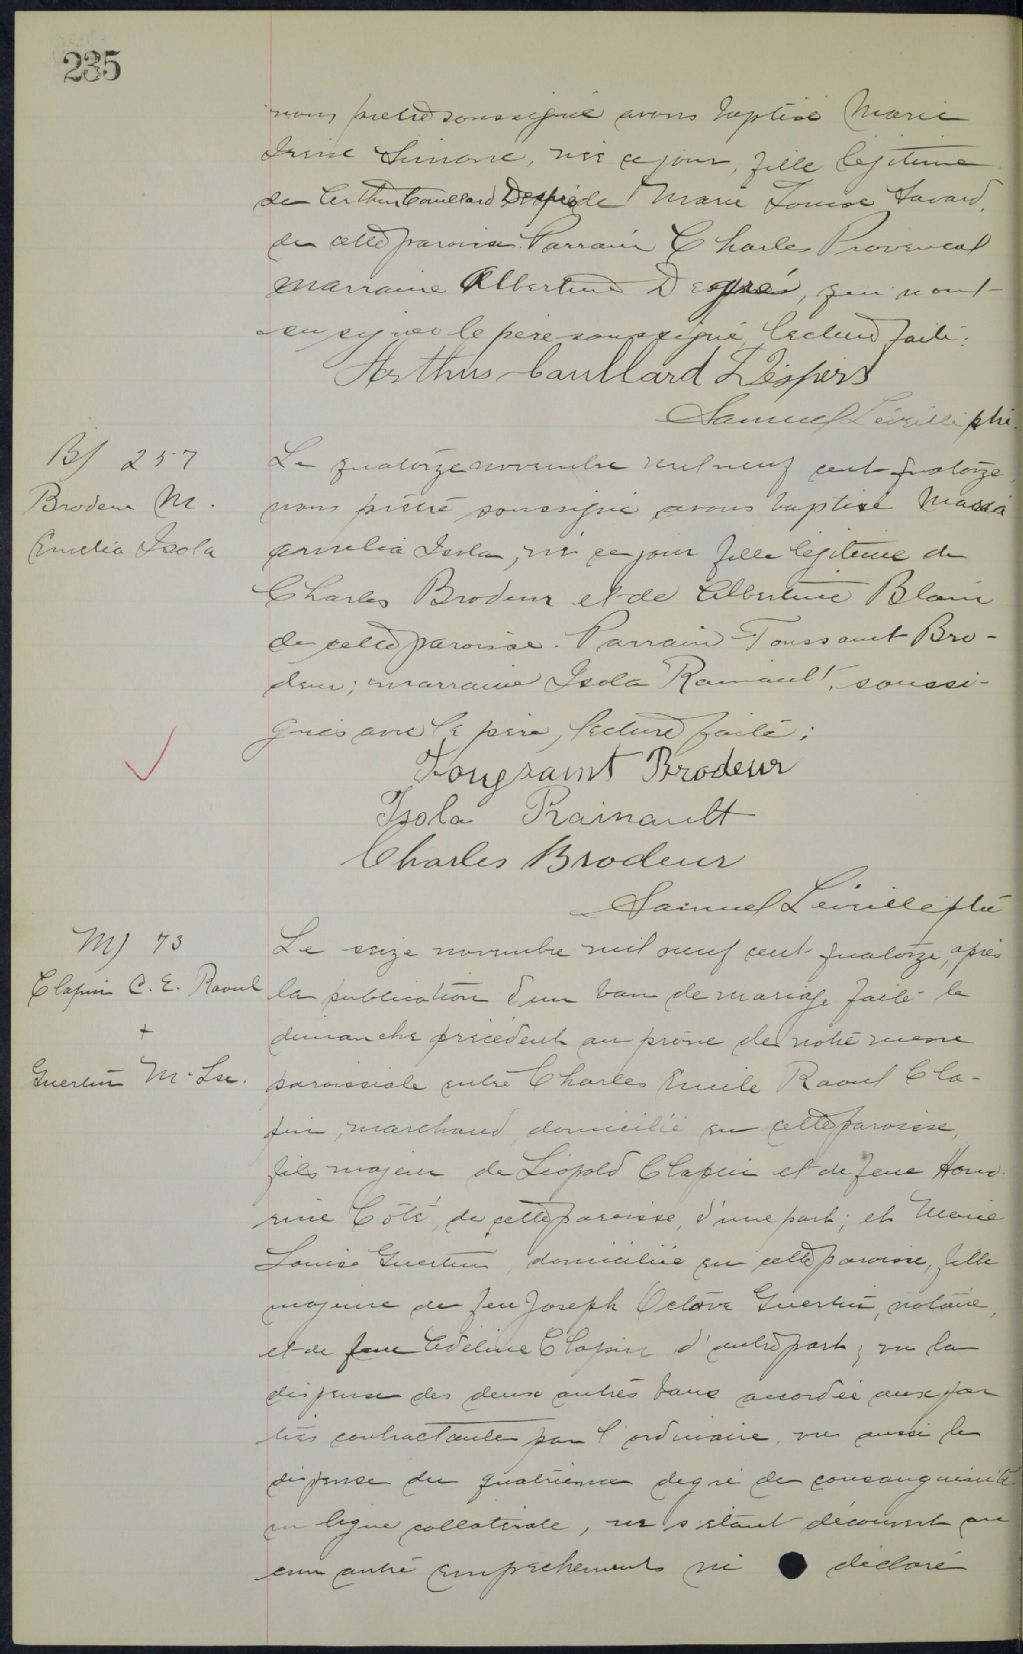 235
nous prêtre soussigné avons baptisé Marie
Irène Simone, née ce jour, fille légitime
de Arthur Caullard Després de Marie Louise Savard,
de cette paroisse. Parrain Charles Provencal
marraine Albertine Després, qui n'ont
su signer le père soussigné, lecture faite.
Arthus Caullard Déspers
Samuel Léveillé ptre.
B/ 257
Brodeur M.
Emelia Isola
Le quatorze novembre mil neuf cent quatorze
nous prêtre soussigné avons baptisé Maria
amelia Isola, née ce jour fille légitime de
Charles Brodeur et de Albertine Blain
de cette paroisse. Parrain Toussaint Bro-
deur; marraine Isola Rainault, soussi-
gnés avec le père, lecture faite;
Tougsaint Brodeur
Isola Rainault
Charles Brodeur
Samuel Léveillé ptre
M) 73
Clapin C. E. Raoul
+
Guertin M. Lse.
Le seize novembre mil neuf cent quatorze, après
la publication d'un ban de mariage faite le
dimanche précédent au prône de notre messe
paroissiale entre Charles Emile Raoul Cla-
pin, marchand, domicilié en cette paroisse,
fils majeur de Léopold Clapin et de feue Hono-
rine Côté, de cette paroisse, d'une part; et Marie
Louise Guertin, domiciliée en cette paroisse, fille
majeure de feu Joseph Octave Guertin, notaire,
et de feue Adéline Clapin d'autre part; vu la
dispense des deux autres bans accordée aux par
ties contractantes par l'ordinaire, vu aussi la
dispense du quatrième degré de consanguinité
en ligne collatérale, ne s'étant découvert au
cun autre empêchement ni déclaré